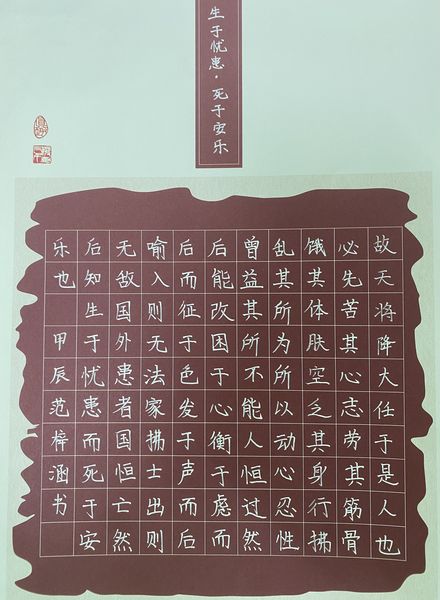 生于忧患·死于安乐
故天将降大任于是人也
必先苦其心志劳其筋骨
饿其体肤空乏其身行拂
乱其所为所以动心忍性
曾益其所不能人恒过然
后能改困于心衡于虑而
后而征于色发于声而后
喻入则无法家拂士出则
无敌国外患者国恒亡然
后知生于忧患而死于安
乐也 甲辰范梓涵书